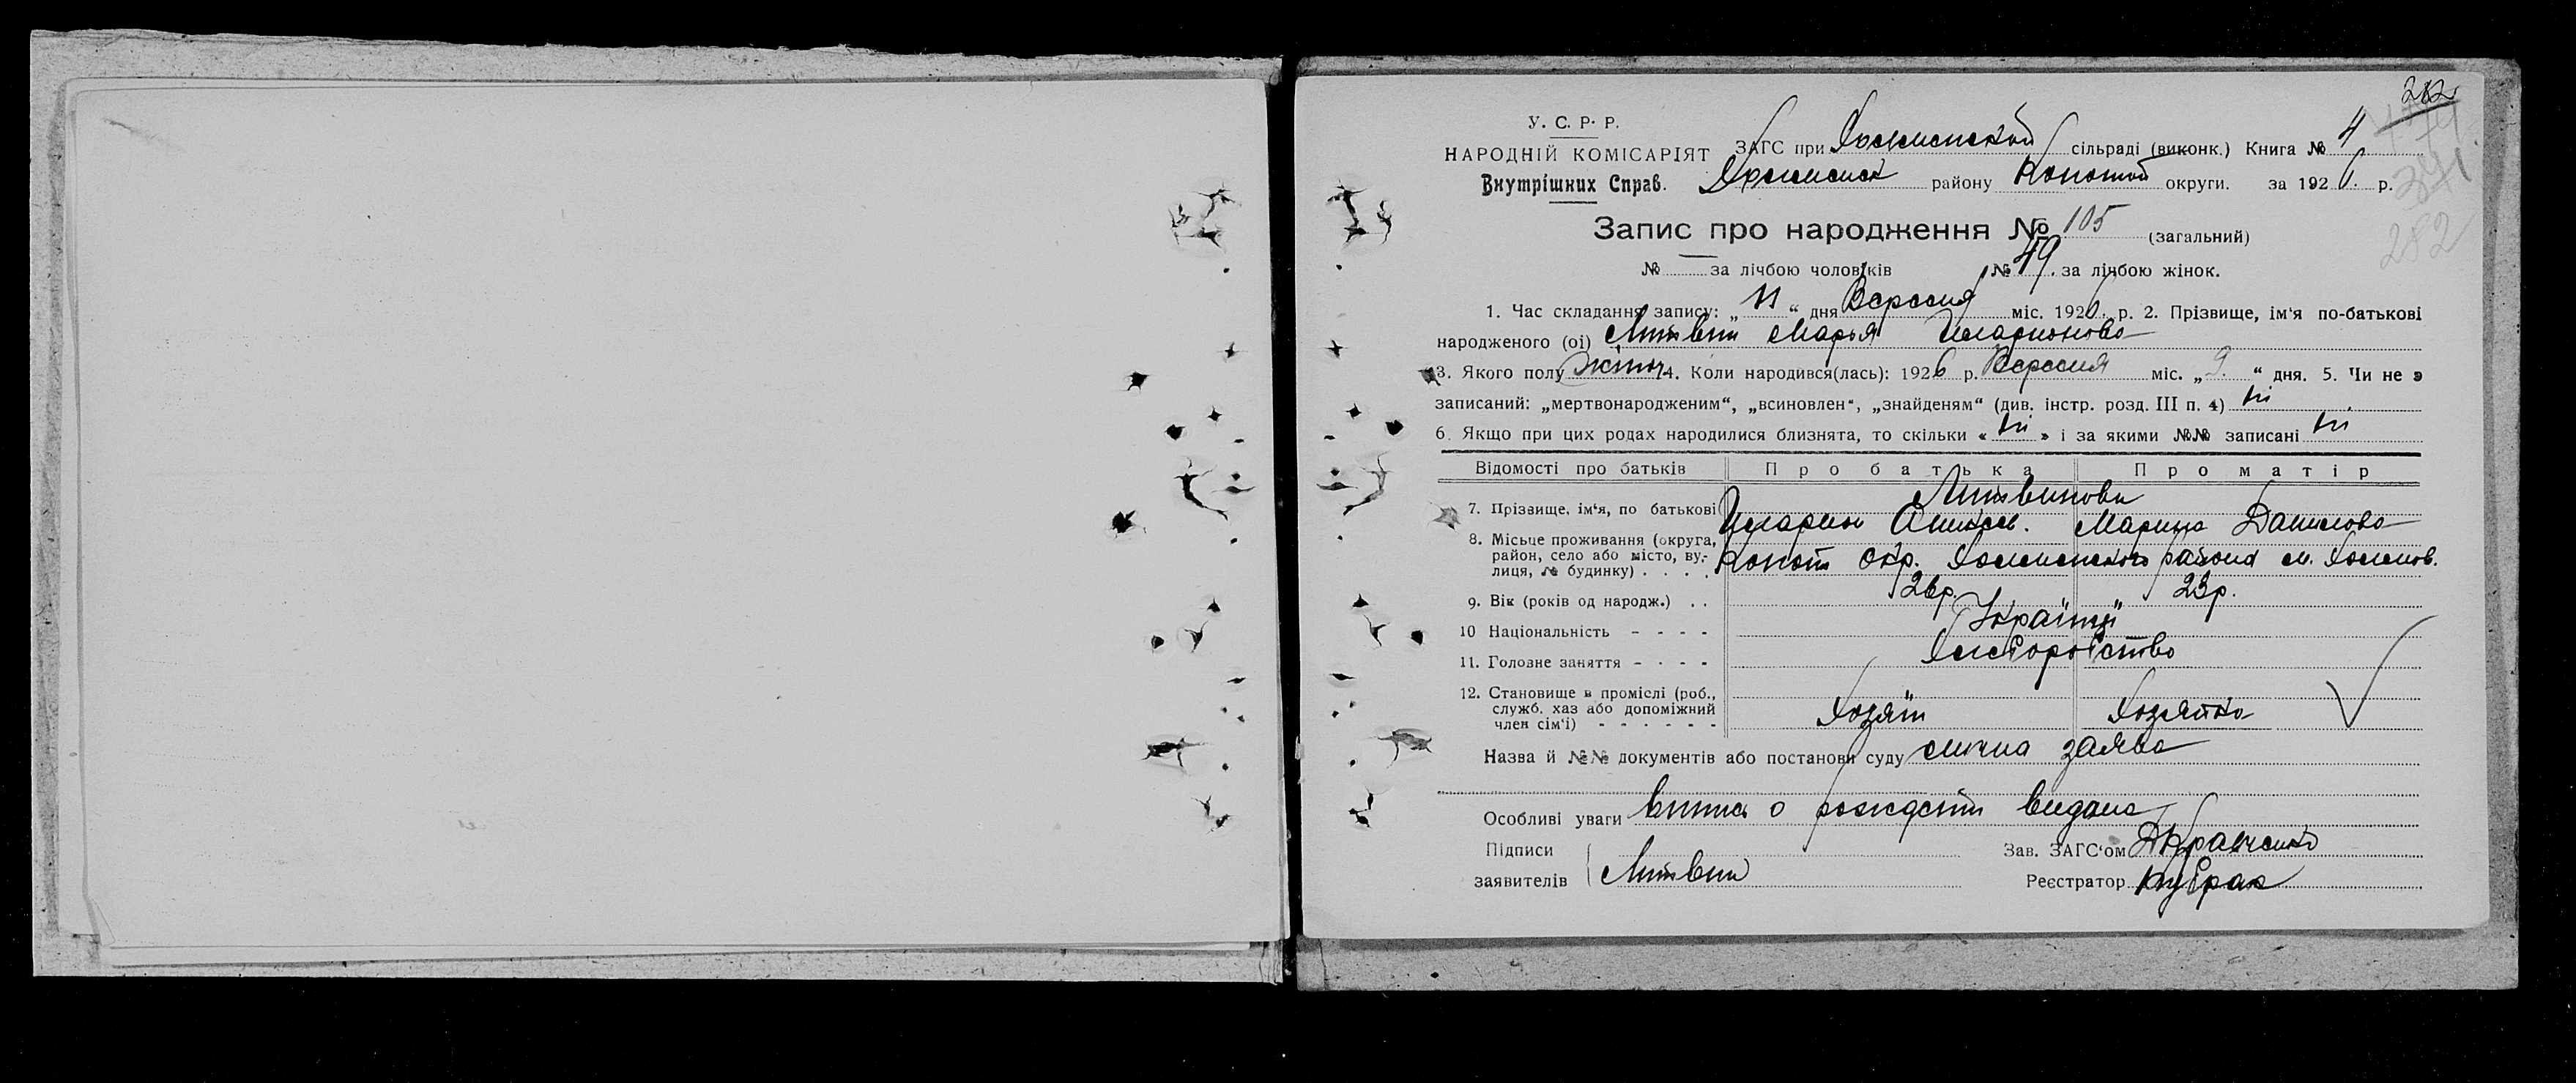 282
У. С. Р. Р.
НАРОДНІЙ КОМІСАРІЯТ
Внутрішних Справ.
ЗАГС при сільраді (виконк.) Книга № 4
району Конотоп округи. за 1926 р.
341
282
Запис про народження № 105 (загальний)
№ — за лічбою чоловіків № 49. за лічбою жінок.
1. Час складання запису: „11“ дня Вересня міс. 1926 р. 2. Прізвище, ім'я по-батькові
народженого (ої) Литвин Марья Иларионова
3. Якого полу жіноч 4. Коли народився(лась): 1926 р. Вересня міс. „9.“ дня. 5. Чи не э
записаний: „мертвонародженим“, „всиновлен“, „знайденям“ (див. інстр. розд. III п. 4) ні
6. Якщо при цих родах народилися близнята, то скільки «ні» і за якими №№ записані ні
Відомості про батьків Про батька Про матір
Литвинови
7. Прізвище, ім'я, по батькові Иларион Марина Данилова
8. Місьце проживання (округа, район, село або місто, вулиця, № будинку) . . . . Конот окр. района м.
9. Вік (років од народж.) . . 26 р. 23 р.
10 Національність - - - - Українці
11. Головне заняття - - - - Хліборобство
12. Становище в промислі (роб., служб. хаз або допоміжний член сім'ї) - - - - - - Хозяїн Хозяйка
Назва й №№ документів або постанови суду слична заява
Особливі уваги о рождении видана
Підписи
заявителів Литвин
Зав. ЗАГС'ом Кравченко
Реєстратор Кубрак